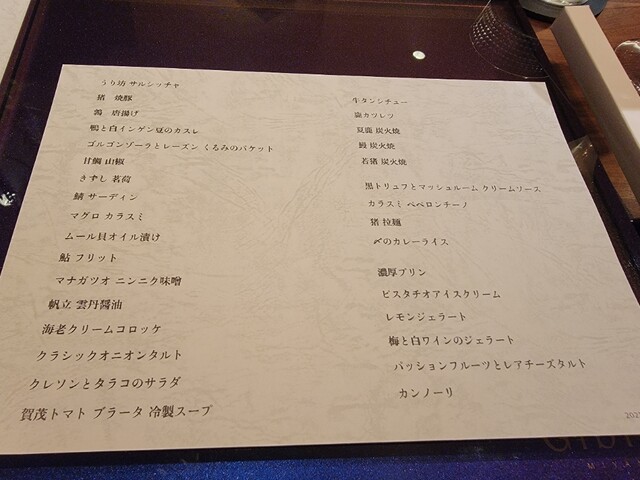 うり坊 サルシッチャ
猪 焼豚
鶉 唐揚げ
鴨と白インゲン豆のカスレ
ゴルゴンゾーラとレーズン くるみのバケット
甘鯛 山椒
きずし 茗荷
鯖 サーディン
マグロ カラスミ
ムール貝オイル漬け
鮎 フリット
マナガツオ ニンニク味噌
帆立 雲丹醤油
海老クリームコロッケ
クラシックオニオンタルト
クレソンとタラコのサラダ
賀茂トマト ブラータ 冷製スープ
牛タンシチュー
カツレツ
夏鹿 炭火焼
鰻 炭火焼
若猪 炭火焼
黒トリュフとマッシュルーム クリームソース
カラスミ ペペロンチーノ
猪 拉麺
〆のカレーライス
濃厚プリン
ピスタチオアイスクリーム
レモンジェラート
梅と白ワインのジェラート
パッションフルーツとレアチーズタルト
カンノーリ